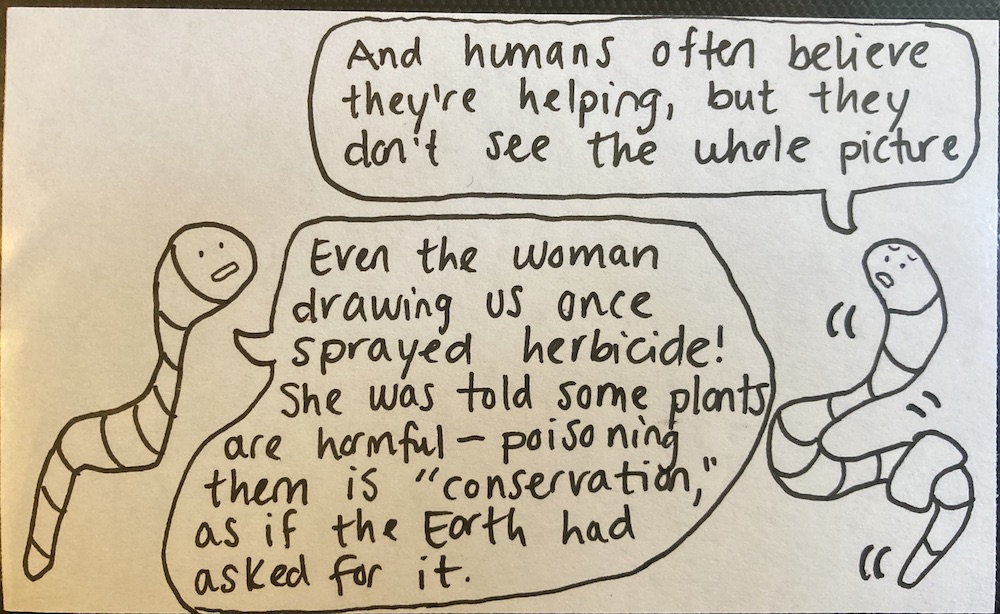 And humans often believe
they're helping, but they
don't see the whole picture
Even the woman
drawing us once
sprayed herbicide!
She was told some plants
are harmful — poisoning
them is "conservation,"
as if the Earth had
asked for it.